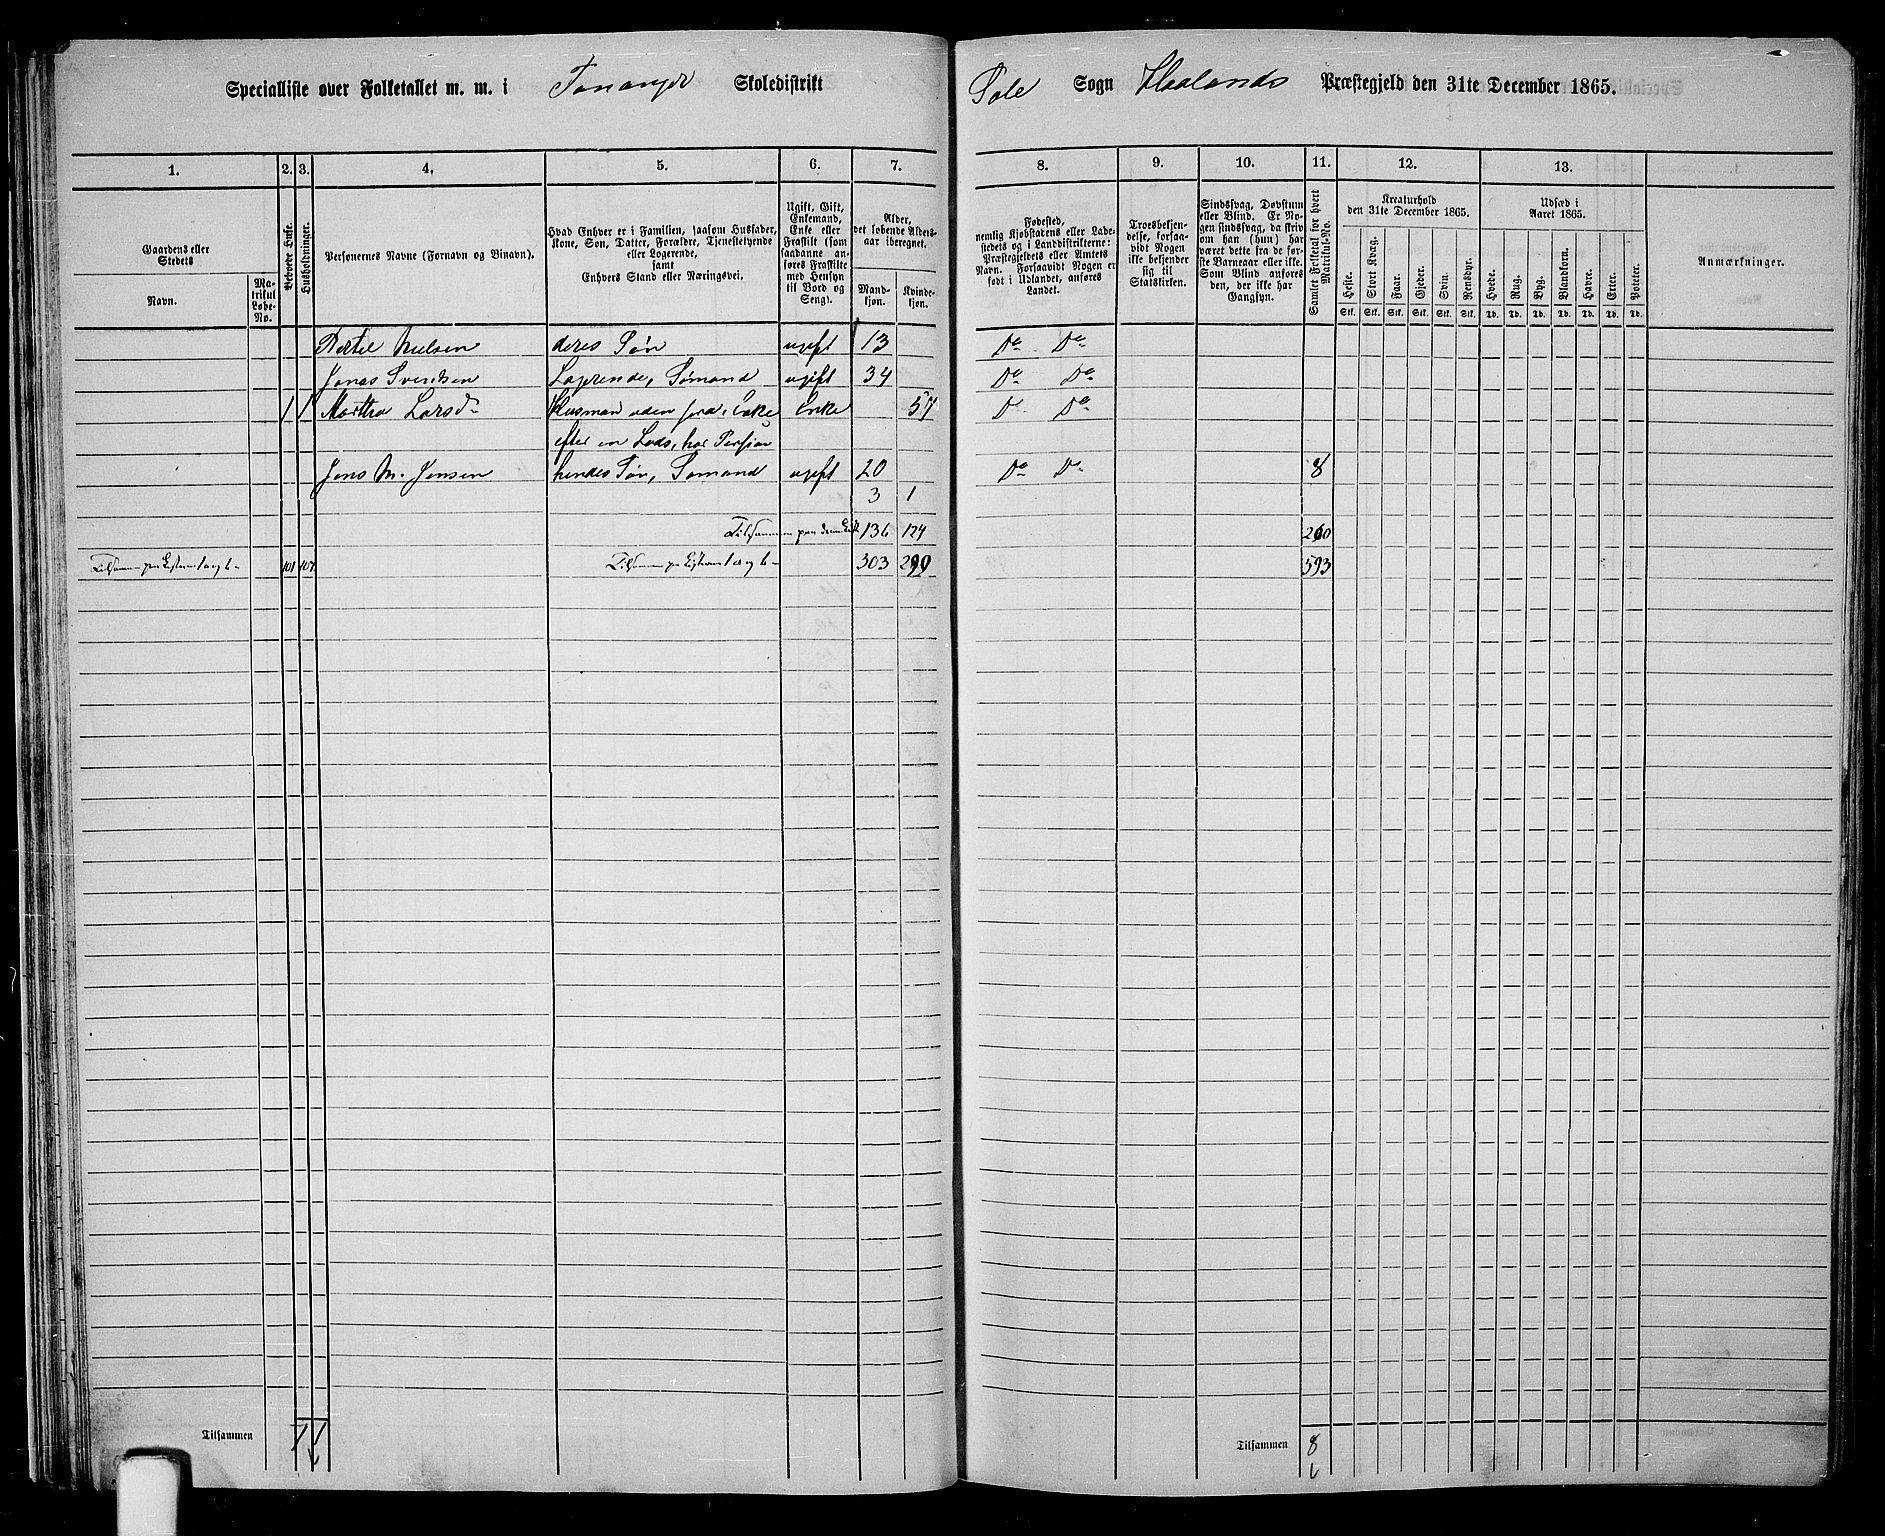 Specialliste over Folketallet m. m. i Tananger Skoledistrikt
Sole Sogn Haalands Præstegjeld den 31te December 1865.
1. 2. 3. 4. 5. 6. 7. 8. 9. 10. 11. 12. 13. 1.
Gaardens eller
Stedets
Navn.
Ma-
trikul
Løbe-
No.
Beboede Huse.
Husholdninger.
Personernes Navne (Fornavn og Binavn).
Hvad Enhver er i Familien, saasom Husfader,
Kone, Søn, Datter, Forældre, Tjenestetyende
eller Logerende,
samt
Enhvers Stand eller Næringsvei.
Ugift, Gift,
Enkemand,
Enke eller
Fraskilt (som
saadanne an-
føres Fraskilte
med Hensyn
til Bord og
Seng).
Alder,
det løbende Alders-
aar iberegnet.
Mand-
kjøn.
Kvinde-
kjøn.
Fødested,
nemlig Kjøbstadens eller Lade-
stedets og i Landdistrikterne:
Præstegjeldets eller Amtets
Navn. Forsaavidt Nogen er
født i Udlandet, anføres
Landet.
Troesbekjen-
delse, forsaa-
vidt Nogen
ikke bekjender
sig til
Statskirken.
Sindssvag, Døvstum
eller Blind. Er No-
gen sindssvag, da skriv
om han (hun) har
været dette fra de før-
ste Barneaar eller ikke.
Som Blind anføres
den, der ikke har
Gangsyn.
Samlet Folketal for hvert
Matrikul-No.
Kreaturhold
den 31te December 1865.
Heste. Stort Kvæg. Faar. Gjeder. Svin. Rensdyr.
Stk. Stk. Stk. Stk. Stk. Stk.
Udsæd i
Aaret 1865.
Hvede. Rug. Byg. Blandkorn. Havre. Erter. Poteter.
Td. Td. Td. Td. Td. Td. Td.
Anmærkninger.
Bertel Nielsen deres Søn ugift 13 Do Do
Jonas Svendsen Logerende, Sømand ugift 34 Do Do
1 1 Martha Larsd. Husmand uden Jord, Enke Enke 57 Do Do
efter en Lods, har Pension
Jens M. Jensen hendes Søn, Sømand ugift 20 Do Do 8
3 1
Tilsammen paa denne Liste 136 124 260
Tilsammen paa Listerne 1 a og b 101 107 Tilsammen paa Listerne 1 a og b 303 290 593
Tilsammen 1 1
Tilsammen 8